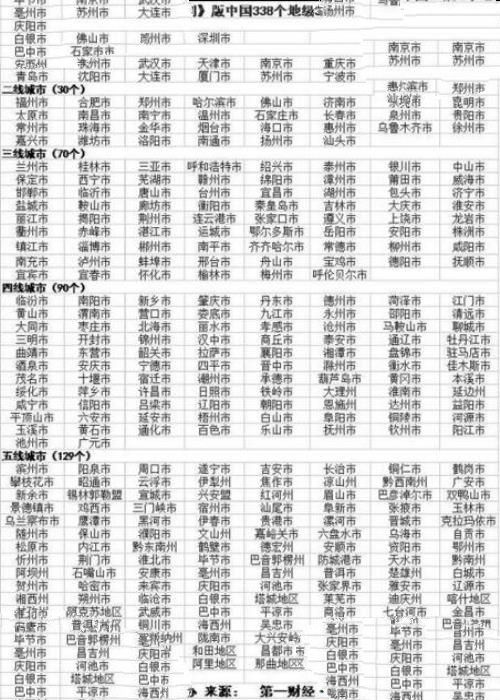 毕节市 昌吉州 武汉市
亳州市 苏州市 大连市 版中国338个地级 扬州市
庆阳市
白银市 佛山市 深圳市 南京市 南京市
巴中市 石家庄市 苏州市 苏州市
武汉市 天津市 南京市 重庆市
青岛市 沈阳市 大连市 厦门市 苏州市 宁波市
二线城市（30个） 郑州市
福州市 合肥市 郑州市 哈尔滨市 佛山市 济南市 昆明市
太原市 南昌市 南宁市 温州市 石家庄市 长春市 泉州市 贵阳市
常州市 珠海市 金华市 烟台市 海口市 惠州市 乌鲁木齐市 徐州市
嘉兴市 潍坊市 洛阳市 南通市 扬州市 汕头市
三线城市（70个）
兰州市 桂林市 三亚市 呼和浩特市 绍兴市 泰州市 银川市 中山市
保定市 西宁市 芜湖市 赣州市 绵阳市 漳州市 莆田市 威海市
邯郸市 临沂市 唐山市 台州市 宜昌市 湖州市 包头市 济宁市
盐城市 鞍山市 廊坊市 衡阳市 秦皇岛市 吉林市 大庆市 淮安市
丽江市 揭阳市 荆州市 连云港市 张家口市 遵义市 上饶市 龙岩市
衢州市 赤峰市 湛江市 运城市 鄂尔多斯市 岳阳市 安阳市 株洲市
镇江市 淄博市 郴州市 南平市 齐齐哈尔市 常德市 柳州市 咸阳市
南充市 泸州市 蚌埠市 邢台市 舟山市 宝鸡市 德阳市 抚顺市
宜宾市 宜春市 怀化市 榆林市 梅州市 呼伦贝尔市
四线城市（90个）
临汾市 南阳市 新乡市 肇庆市 丹东市 德州市 菏泽市 江门市
黄山市 渭南市 营口市 娄底市 九江市 永州市 邵阳市 清远市
大同市 枣庄市 北海市 丽水市 孝感市 沧州市 马鞍山市 聊城市
三明市 开封市 锦州市 汉中市 商丘市 泰安市 通辽市 牡丹江市
曲靖市 东营市 韶关市 拉萨市 襄阳市 湘潭市 盘锦市 驻马店市
酒泉市 安庆市 宁德市 四平市 晋中市 滁州市 衡水市 佳木斯市
茂名市 十堰市 宿迁市 潮州市 承德市 葫芦岛市 黄冈市 本溪市
绥化市 萍乡市 许昌市 日照市 铁岭市 大理州 淮南市 延边州
咸宁市 信阳市 吕梁市 辽阳市 朝阳市 恩施州 达州市 益阳市
平顶山市 六安市 延安市 梧州市 白山市 阜阳市 铜陵市 河源市
玉溪市 黄石市 通化市 百色市 乐山市 抚州市 钦州市 阳江市
池州市 广元市
五线城市（129个）
滨州市 阳泉市 周口市 遂宁市 吉安市 长治市 铜仁市 鹤岗市
攀枝花市 昭通市 云浮市 伊犁州 焦作市 凉山州 黔西南州 广安市
新余市 锡林郭勒盟 宣城市 兴安盟 红河州 眉山市 巴彦淖尔市 双鸭山市
景德镇市 鸡西市 三门峡市 宿州市 汕尾市 阜新市 张掖市 玉林市
乌兰察布市 鹰潭市 黑河市 伊春市 贵港市 漯河市 晋城市 克拉玛依市
随州市 保山市 濮阳市 文山州 嘉峪关市 六盘水市 乌海市 自贡市
松原市 内江市 黔东南州 鹤壁市 德宏州 安顺市 资阳市 鄂州市
忻州市 荆门市 淮北市 毕节市 巴音郭楞州 防城港市 天水市 黔南州
阿坝州 石嘴山市 安康市 亳州市 昌吉州 普洱市 楚雄州 白城市
贺州市 哈密市 来宾市 庆阳市 河池市 张家界市 雅安市 辽源市
湘西州 朔州市 临沧市 白银市 塔城地区 莱芜市 迪庆州 喀什地区
阿克苏地区 武威市 巴中市 平凉市 商洛市 七台河市 金昌市
铜川市 海西州 吴忠市 亳州市 毕节市
毕节市 巴音郭楞州 陇南市 大兴安岭 庆阳市 亳州市
亳州市 昌吉州 庆阳市 和田地区 昌都市 白银市 庆阳市
庆阳市 河池市 白银市 阿里地区 那曲地区 巴中市 白银市
白银市 塔城地区 巴中市 巴中市
巴中市 平凉市 海西州 来源： 第一财经 陇南市 海西州